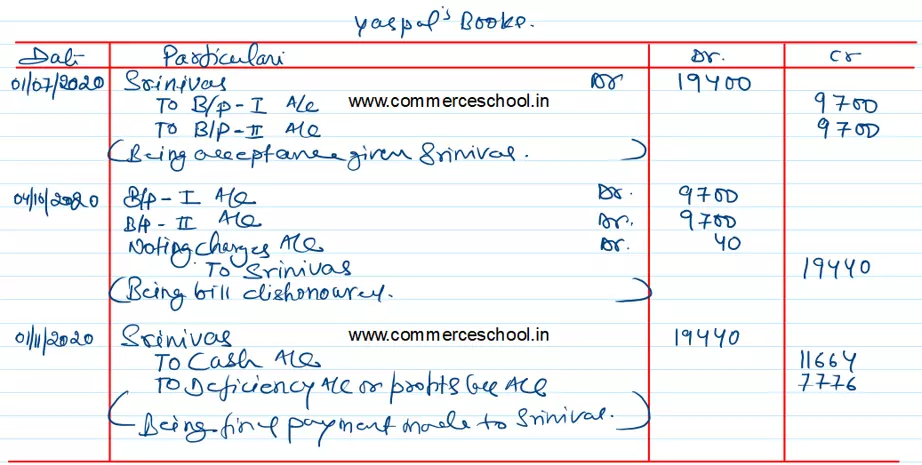 Yaspal's Books.
Date Particulars Dr. Cr
01/07/2020 Srinivas Dr 19400
To B/P-I A/c www.commerceschool.in 9700
To B/P-II A/c 9700
(Being acceptance given Srinivas.)
04/10/2020 B/P-I A/c Dr. 9700
B/P-II A/c Dr. 9700
Noting charges A/c Dr. 40
To Srinivas 19440
(Being bill dishonoured.)
01/11/2020 Srinivas www.commerceschool.in 19440
To Cash A/c 11664
To Deficiency A/c or profits &c A/c 7776
(Being final payment made to Srinivas.)